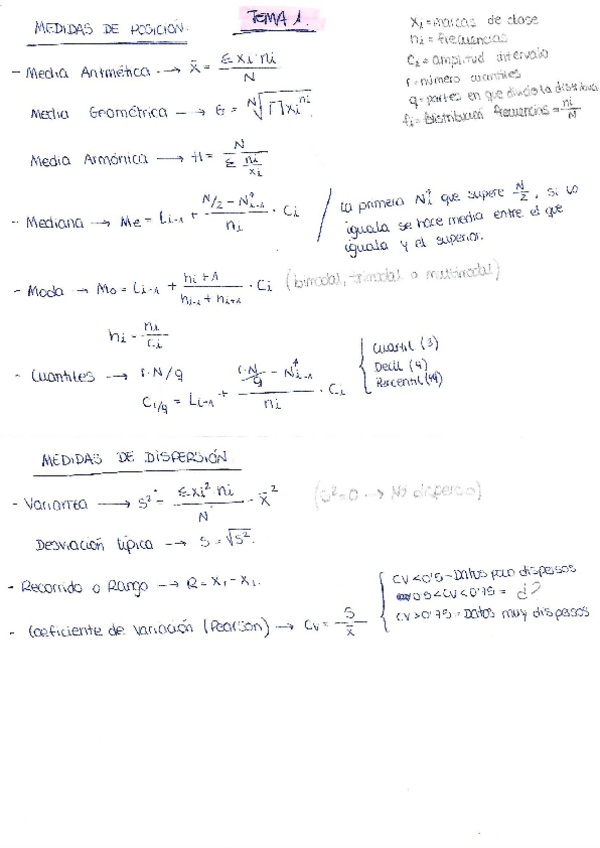 TEMA 1.
MEDIDAS DE POSICIÓN.
Xi = marcas de clase
ni = frecuencias
Ci = amplitud intervalo
r = número cuantiles
q = partes en que divide la distribución
fi = distribución frecuencias = ni/N
- Media Aritmética → X̄ = Σ Xi·ni / N
Media Geométrica → G = ᴺ√ΠXi^ni
Media Armónica → H = N / Σ ni/Xi
- Mediana → Me = Li-1 + (N/2 - Ni-1↑) / ni · Ci
La primera Ni↑ que supere N/2, si lo
iguala se hace media entre el que
iguala y el superior.
- Moda → Mo = Li-1 + hi+1 / (hi-1 + hi+1) · Ci (bimodal, trimodal o multimodal)
hi = ni/Ci
- Cuantiles → r·N/q
Cr/q = Li-1 + (r·N/q - Ni-1↑) / ni · Ci
Cuartil (3)
Decil (9)
Percentil (99)
MEDIDAS DE DISPERSIÓN
- Varianza → S² = Σ Xi² ni / N - X̄² (S²=0 → No disperso)
Desviación típica → S = √S².
- Recorrido o Rango → R = X1 - X1.
- Coeficiente de variación (Pearson) → CV = S / X̄
CV < 0'5 - Datos poco dispersos
0'5 < CV < 0'75 = ¿?
CV > 0'75 - Datos muy dispersos